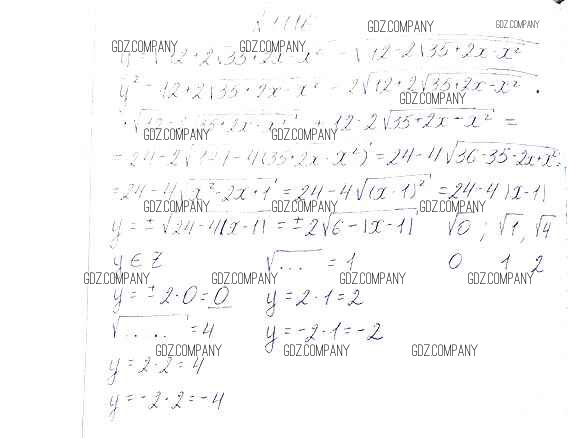 GDZ.COMPANY GDZ.COMPANY
GDZ.COMPANY GDZ.COMPANY GDZ.COMPANY
y = √12+2√35+2x-x² - √12-2√35+2x-x²
y² = 12+2√35+2x-x² - 2√12+2√35+2x-x² ·
GDZ.COMPANY
· √12-2√35+2x-x² + 12-2√35+2x-x² =
GDZ.COMPANY GDZ.COMPANY
= 24-2√144-4(35+2x-x²) = 24-4√36-35-2x+x² =
= 24-4√x²-2x+1 = 24-4√(x-1)² = 24-4|x-1|
GDZ.COMPANY GDZ.COMPANY GDZ.COMPANY
y = ±√24-4|x-1| = ±2√6-|x-1| √0; √1, √4
y ∈ Z √... = 1 0 1 2
GDZ.COMPANY GDZ.COMPANY GDZ.COMPANY GDZ.COMPANY
y = ±2·0=0 y = 2·1=2
√.... = 4 y = -2·1=-2
GDZ.COMPANY GDZ.COMPANY GDZ.COMPANY
y = 2·2=4
y = -2·2=-4